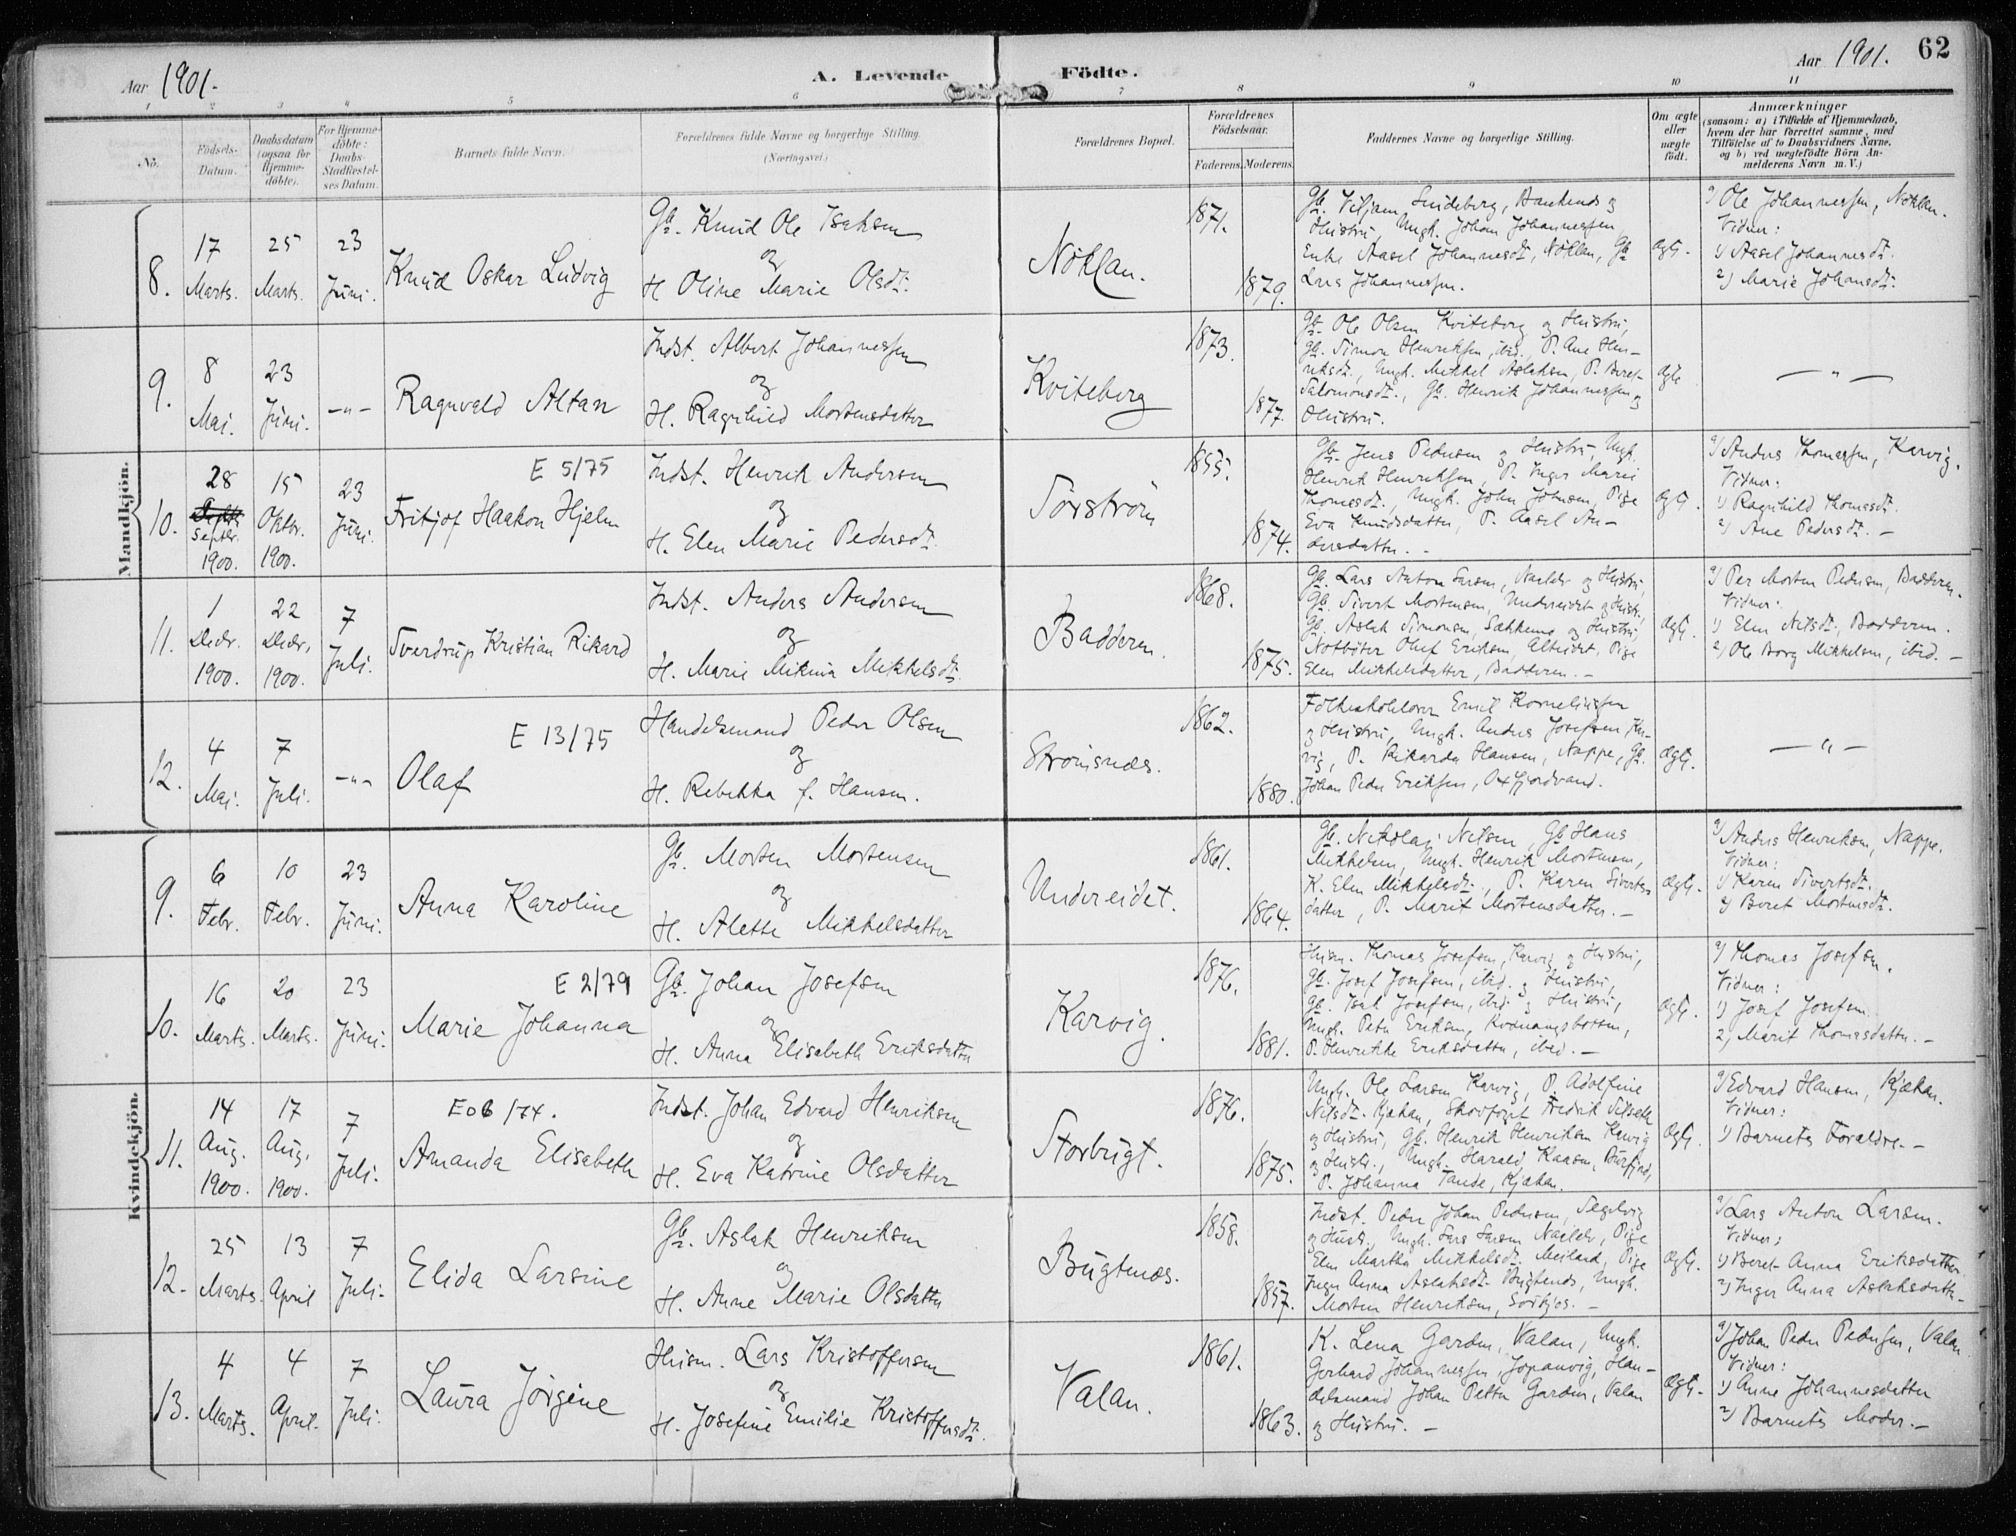 Aar 1901.
A. Levende Födte.
Aar 1901. 62
1 2 3 4 5 6 7 8 9 10 11
No.
Fødsels-Datum.
Daabsdatum (ogsaa for Hjemmedöbte).
For Hjemmedöbte: Daabs-Stadfæstelses Datum.
Barnets fulde Navn.
Forældrenes fulde Navne og borgerlige Stilling.
(Næringsvei.)
Forældrenes Bopæl.
Forældrenes Födselsaar.
Faderens. Moderens.
Faddernes Navne og borgerlige Stilling.
Om ægte eller uægte födt.
Anmærkninger
(saasom: a) i Tilfælde af Hjemmedaab,
hvem der har forrettet samme, med
Tilföielse af to Daabsvidners Navne,
og b) ved uægtefödte Börn Anmelderens Navn m. V.)
Mandkjön.
8.
17 Marts.
25 Marts.
23 Juni.
Knud Oskar Ludvig
Gb. Knud Ole Isaksen
og
H. Oline Marie Olsdt.
Nöklan.
1871.
1879.
Hustru, Ungk. Johan Johannessen
Enke Aasel Johannesdt., Nöklan, Gb.
Lars Johannessen.
Ægt.
a) Ole Johannessen, Nöklan.
Vidner:
1) Aasel Johannesdt.
2) Marie Johansdt.
9.
8 Mai.
23 Juni.
-"-
Ragnvald Altan
Indst. Albert Johannessen
og
H. Ragnhild Mortensdatter
Kviteberg
1873.
1877.
Gb. Ole Olsen Kviteberg og Hustru,
Gb. Simon Henriksen, ibid., P. Ane Hen-
riksdt., Ungk. Mikkel Aslaksen, P. Beret
Salomonsdt., Gb. Henrik Johannessen og
Hustru.
Ægte
— " —
10.
28 Septbr. 1900.
15 Oktbr. 1900.
23 Juni.
E 5/75
Fritjof Haakon Hjelm
Indst. Henrik Andersen
og
H. Elen Marie Pedersdt.
Sørstrøm
1855.
1874.
Gb. Jens Pedersen og Hustru, Ungk.
Henrik Henriksen, P. Inger Marie
Thomasdt., Ungk. John Johnsen, Pige
Eva Knudsdatter, P. Aasel An-
dersdatter. -
Ægt.
a) Anders Thomassen, Karvig.
Vidner:
1) Ragnhild Thomasdt.
2) Ane Pedersdt. -
11.
1 Decbr. 1900.
22 Decbr. 1900.
7 Juli.
Sverdrup Kristian Rikard
Indst. Anders Andersen
og
H. Marie Mikina Mikkelsdt.
Badderen.
1868.
1875.
Gb. Lars Anton Larsen, og Hustru,
Gb. Sivert Mortensen, Undereidet og Hustru,
Gb. Aslak Simonsen, og Hustru
Notböter Oluf Eriksen, Alteidet, Pige
Elen Mikkelsdatter, Badderen. -
Ægt.
a) Per Morten Pedersen, Badderen.
Vidner:
1) Elen Nilsdt., Badderen.
2) Ole Borg Mikkelsen, ibid. -
12.
4 Mai.
7 Juli.
-"-
E 13/75
Olaf
Handelsmand Peder Olsen
og
H. Rebekka f. Hansen.
Strömsnæs.
1862.
1880.
Folkeskolelærer Emil Korneliussen
og Hustru, Ungk. Anders Josefsen, Kar-
vig, P. Rikarda Hansen, Nappe, Gb.
Johan Peder Eriksen, Oxfjordvand.
Ægt.
— " —
Kvindekjön.
9.
6 Febr.
10 Febr.
23 Juni.
Anna Karoline
Gb. Morten Mortensen
og
H. Alette Mikkelsdatter
Undereidet.
1861.
1864.
Gb. Nikolai Nilsen, Gb. Hans
Mikkelsen, Ungk. Henrik Mortensen,
K. Elen Mikkelsdt., P. Karen Siverts-
datter, P. Marit Mortensdatter. -
Ægt.
a) Anders Henriksen, Nappe.
Vidner:
1) Karen Sivertsdt.
2) Beret Mortensdt.
10.
16 Marts.
20 Marts.
23 Juni.
E 2/79
Marie Johanna
Gb. Johan Josefsen
og
H. Anna Elisabeth Eriksdatter
Karvig.
1876.
1881.
Husm. Thomas Josefsen, Karvig og Hustru,
Gb. Josef Josefsen, ibid. og Hustru,
Gb. Isak Josefsen, ibid. og Hustru,
Ungk. Peder Eriksen, Kvænangsbotten,
P. Henrikke Eriksdatter, ibid. -
Ægt.
a) Thomas Josefsen.
Vidner:
1) Josef Josefsen
2) Marit Thomasdatter. -
11.
14 Aug. 1900.
17 Aug. 1900.
7 Juli.
E 06/74.
Amanda Elisabeth
Indst. Johan Edvard Henriksen
og
H. Eva Katrine Olsdatter
Storbugt.
1876.
1875.
Ungk. Ole Larsen Karvig, P. Adolfine
Nilsdt. Kjækan, Skovfogt Fredrik
og Hustru, Gb. Henrik Henriksen Karvig
og Hustr., Ungk. Harald Kaasen, Burfjord,
P. Johanna Tande, Kjækan.
Ægt.
a) Edvard Hansen, Kjækan.
Vidner:
1) Barnets Forældre. -
12.
25 Marts.
13 April
7 Juli.
Elida Larsine
Gb. Aslak Henriksen
og
H. Anne Marie Olsdatter
Bugtenæs.
1858.
1857.
Indst. Peder Johan Pedersen, Segelvig
og Hustr., Ungk. Lars Larsen, Pige
Elen Martha Mikkelsdt. Meiland, Pige
Inger Anna Aslaksdt. Bugtenæs, Ungk.
Morten Henriksen, -
Ægt.
a) Lars Anton Larsen.
Vidner:
1) Beret Anna Eriksdatter
2) Inger Anna Aslaksdatter -
13.
4 Marts.
4 April.
7 Juli.
Laura Jörgine
Husm. Lars Kristoffersen
og
H. Josefine Emilie Kristoffersdt.
Valan.
1861.
1863.
K. Lena Garden, Valan, Ungk.
Gerhard Johannessen, Jopanvig, Han-
delsmand Johan Petter Garden, Valan
og Hustru. -
Ægt.
a) Johan Peder Pedersen, Valan
Vidner:
1) Anne Johannesdatter
2) Barnets Moder. -